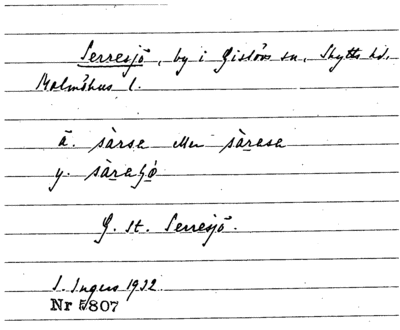 Serresjö, by i Gislövs sn, Skytts hd,
Malmöhus l.
ä. sàrsa eller sàrasa
y. sàraʃø
G. st. Serresjö.
I. Ingers 1932
Nr 5807